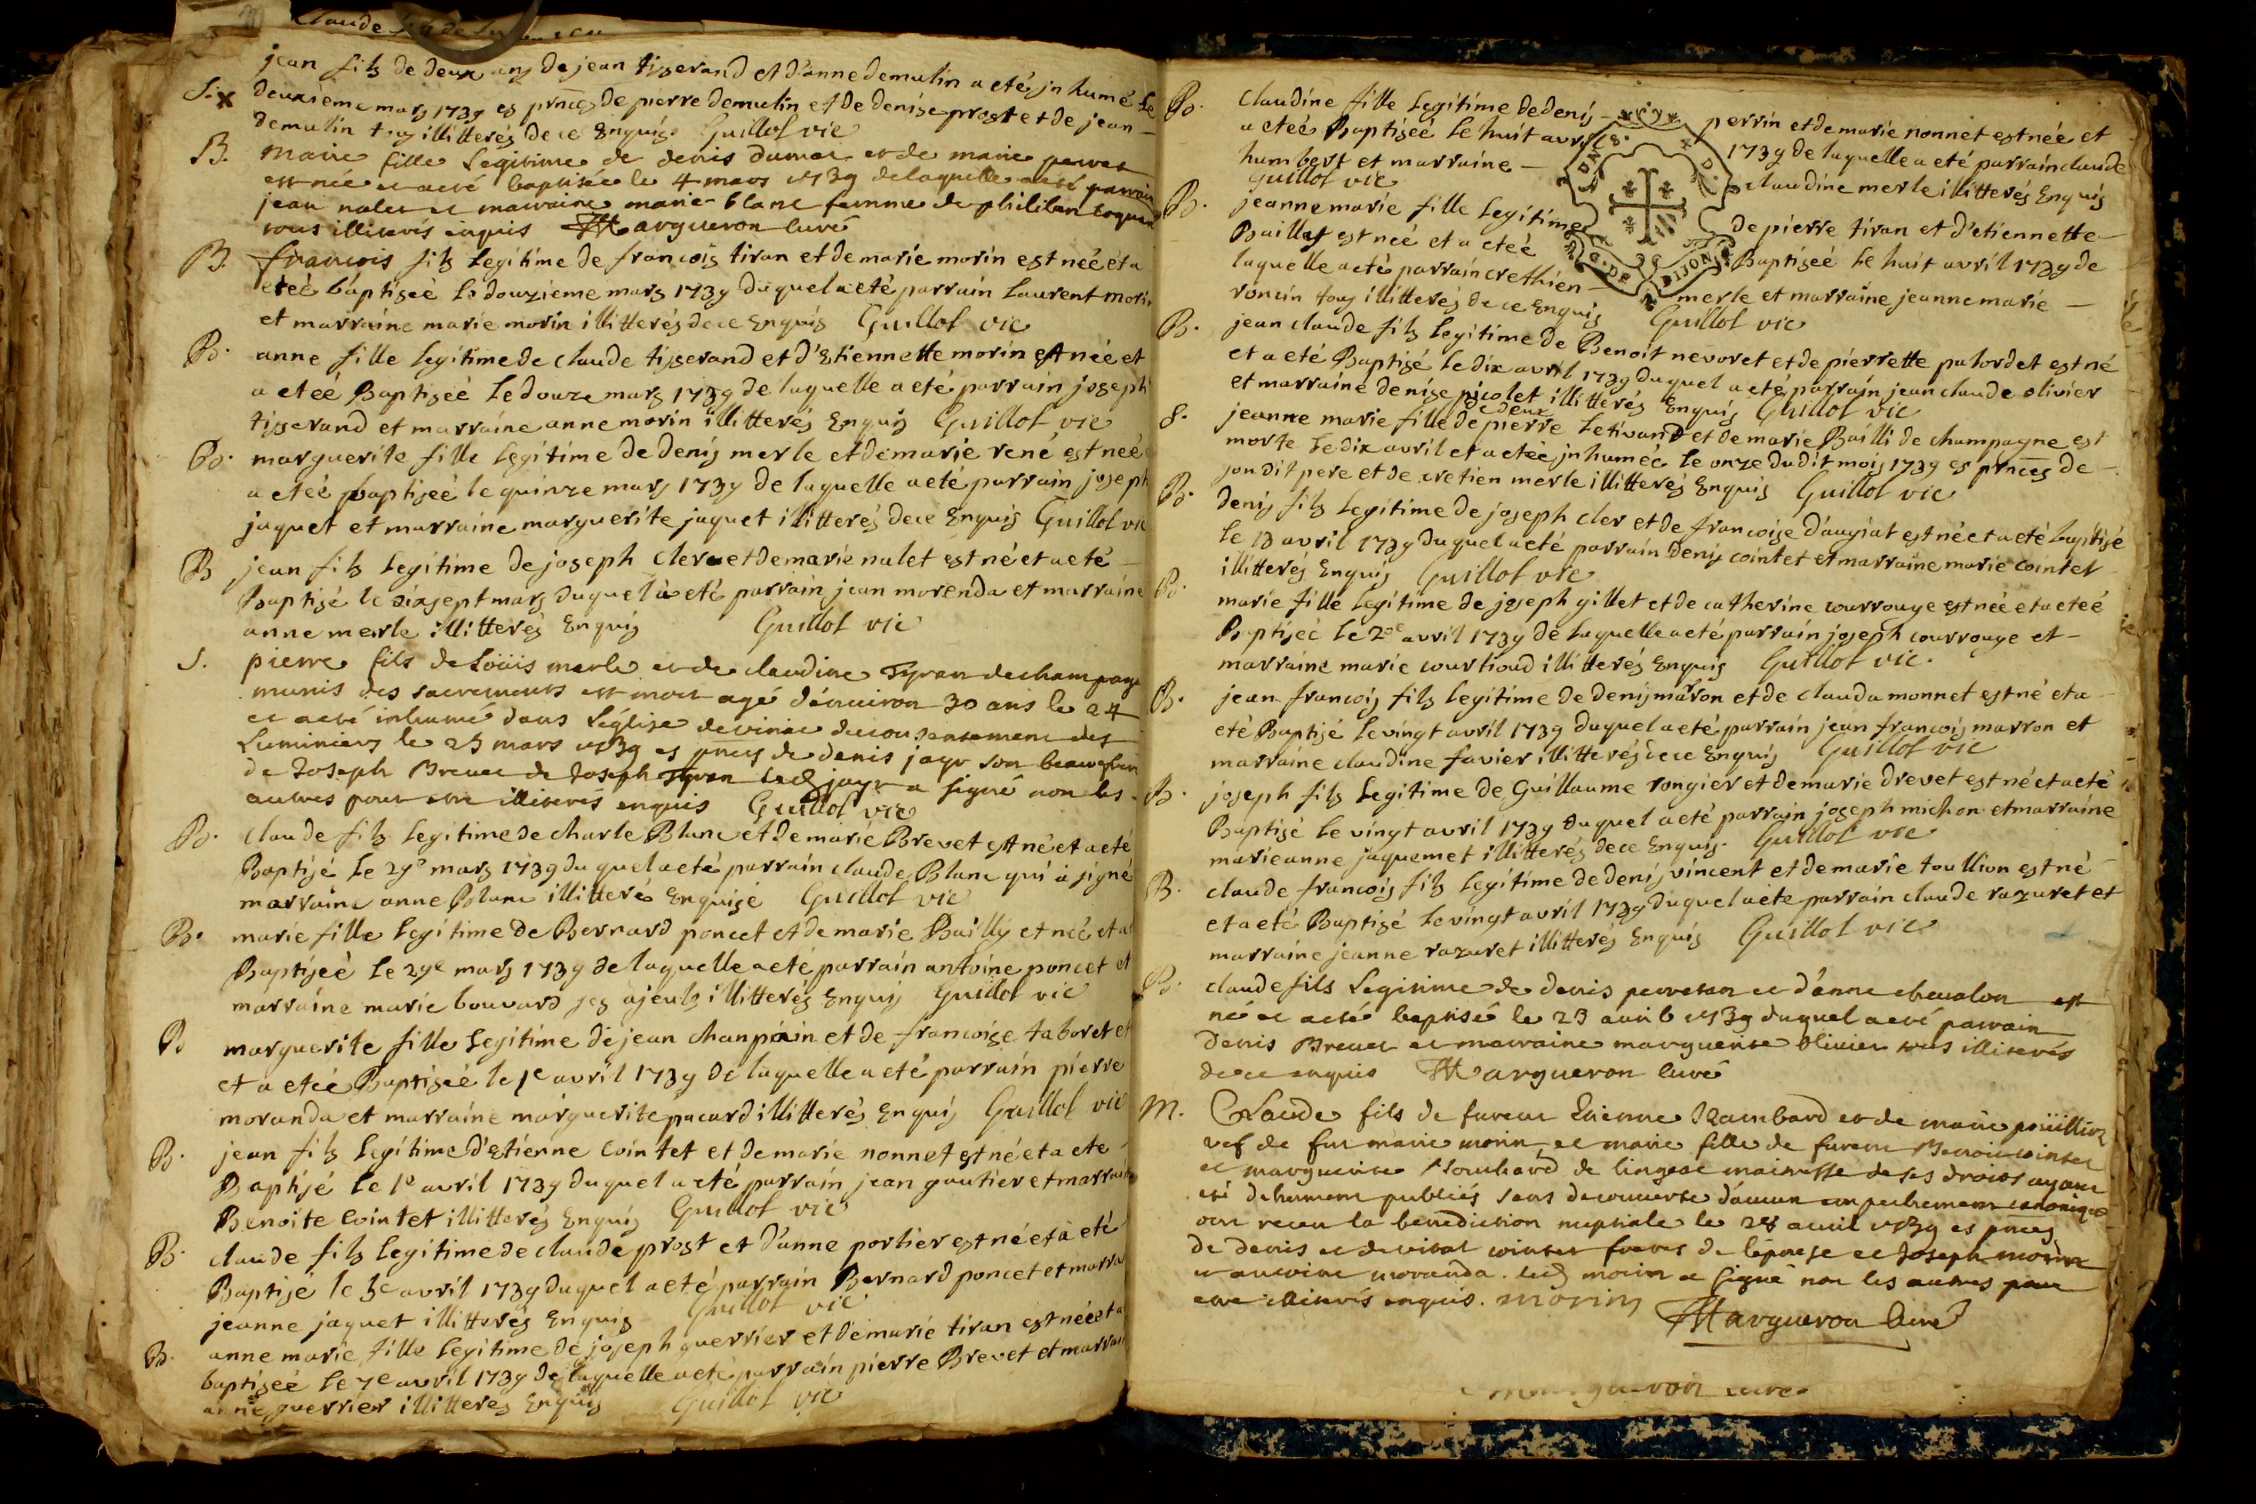 jean fils de deux ans de jean tisserand et d'anne demulin a eté jnhumé le
S. x deuxieme mars 1739 es pnces de pierre demulin et de denise prost et de jean
demulin tous illitterés de ce Enquis Guillot vic
B. marie fille Legitime de denis dumas et de marie perret
est née et a eté baptisée le 4 mars 1739 de laquelle a eté parrain
jean nalet et marraine marie blanc femme de philiben
tous illiterés enquis Margueron curé
B. francois fils Legitime de francois tiran et de marie morin est né et a
eteé baptiseé le douzieme mars 1739 duquel a eté parrain Laurent morin
et marraine marie morin illitterés de ce Enquis Guillot vic
B. anne fille legitime de claude tisserand et d'Etiennette morin est née et
a eteé Baptiseé Le douze mars 1739 de laquelle a eté parrain joseph
tisserand et marraine anne morin illitterés Enquis Guillot vic
B. marguerite fille Legitime de denis merle et de marie rené est neé
a eteé baptiseé le quinze mars 1739 de laquelle a eté parrain joseph
jaquet et marraine marguerite jaquet illitterés de ce Enquis Guillot vic
B jean fils Legitime de joseph clere et de marie nalet est né et a eté
Baptisé le dixsept mars duquel a eté parrain jean morenda et marraine
anne merle illitterés Enquis Guillot vic
S. pierre fils de Loüis merle et de claudine Tyran de champagne
munis des sacrements est mort agé d'environ 30 ans le 24
et a eté inhumé dans L'église de du consentement des
Luminiers le 25 mars 1739 es pnces de denis jayr son beaufrere
de Joseph Brevet de Joseph Tyran led jayr a signé non les
autres pour etre illiterés enquis Guillot vic
B. claude fils legitime de charle Blanc et de marie Brevet est né et a eté
Baptisé Le 29e mars 1739 duquel a eté parrain claude Blanc qui a signé
marraine anne Blanc illitteré Enquise Guillot vic
B. marie fille Legitime de Bernard poncet et de marie Bailly et neé et a
Baptiseé Le 29e mars 1739 de laquelle a eté parrain antoine poncet et
marraine marie bouvard ses ajeuls illitterés Enquis Guillot vic
B marguerite fille Legitime de jean chanpain et de francoise taboret et
et a eteé Baptiseé le 1e avril 1739 de laquelle a eté parrain pierre
moranda et marraine marguerite pacard illitterés Enquis Guillot vic
B. jean fils Legitime d'etienne Cointet et de marie nonnet est né et a eté
Baptisé Le 1e avril 1739 duquel a eté parrain jean gautier et marraine
Benoite Cointet illitterés Enquis Guillot vic
B. claude fils Legitime de claude prost et d'anne portier est né et a eté
Baptisé le 3e avril 1739 duquel a eté parrain Bernard poncet et marra
jeanne jaquet illitterés Enquis Guillot vic
B. anne marie fille Legitime de joseph guerrier et de marie tiran est neé et a
baptiseé Le 7e avril 1739 de laquelle a eté parrain pierre Brevet et marrai
anne guerrier illitterés Enquis Guillot vic
B. claudine fille Legitime de denis perrin et de marie nonnet est née et
a eteé Baptiseé Le huit avril 1739 de laquelle a eté parrain claude
humbert et marraine claudine merle illitterés Enquis
Guillot vic
B. jeanne marie fille Legitime de pierre tiran et d'etiennette
Baillat est neé et a eteé Baptiseé Le huit avril 1739 de
laquelle a eté parrain crethien merle et marraine jeanne marie
roncin tous illitterés de ce Enquis Guillot vic
G. DE DIJON
B. jean claude fils Legitime de Benoit nevoret et de pierrette palordet est né
et a eté Baptisé Le dix avril 1739 duquel a eté parrain jean claude olivier
et marraine denise picolet illitterés Enquis Guillot vic
de deux
S. jeanne marie fille de pierre Letivand et de marie Bailli de champagne est
morte Le dix avril et a eteé jnhumeé Le onze dudit mois 1739 es pnces de
son dit pere et de cretien merle illitterés Enquis Guillot vic
B. denis fils Legitime de joseph cler et de francoise d'augiat est né et a eté baptisé
Le 13 avril 1739 duquel a eté parrain denis cointet et marraine marie cointet
illitterés Enquis Guillot vic
B. marie fille Legitime de joseph gillet et de catherine courrouge est née et a eteé
Baptiseé Le 20e avril 1739 de laquelle a eté parrain joseph courrouge et
marraine marie courtioud illitterés Enquis Guillot vic.
B. jean francois fils Legitime de denis marron et de clauda monnet est né et a
eté Baptisé Le vingt avril 1739 duquel a eté parrain jean francois marron et
marraine claudine favier illitterés de ce Enquis Guillot vic
B. joseph fils Legitime de Guillaume rongier et de marie drevet est né et a eté
Baptisé Le vingt avril 1739 duquel a eté parrain joseph michon et marraine
marieanne jaquemet illitterés de ce Enquis. Guillot vic
B. claude francois fils Legitime de denis vincent et de marie toullion est né
et a eté Baptisé Le vingt avril 1739 duquel a eté parrain claude razuret et
marraine jeanne razuret illitterés Enquis Guillot vic
B. claude fils Legitime de denis perretan et d'anne chevalon est
né et a eté baptisé le 23 avril 1739 duquel a eté parrain
Denis Brevet et marraine marguerite Olivier tous illiterés
de ce enquis Margueron curé
M. Claude fils de fureur Etienne Rambard et de marie poüillion
vef de fut marie morin, et marie fille de fureur Benoit cointet
et marguerite de maitresse de ses droits ayant
eté dehument publiés sans decouverte d'aucun empechement canonique
ont receu la benediction nuptiale le 28 avril 1739 es pnces
de denis et de vital cointet freres de l'epouse et Joseph morin
et antoine moranda. led morin a signé non les autres pour
etre illiterés enquis. morin Margueron Curé